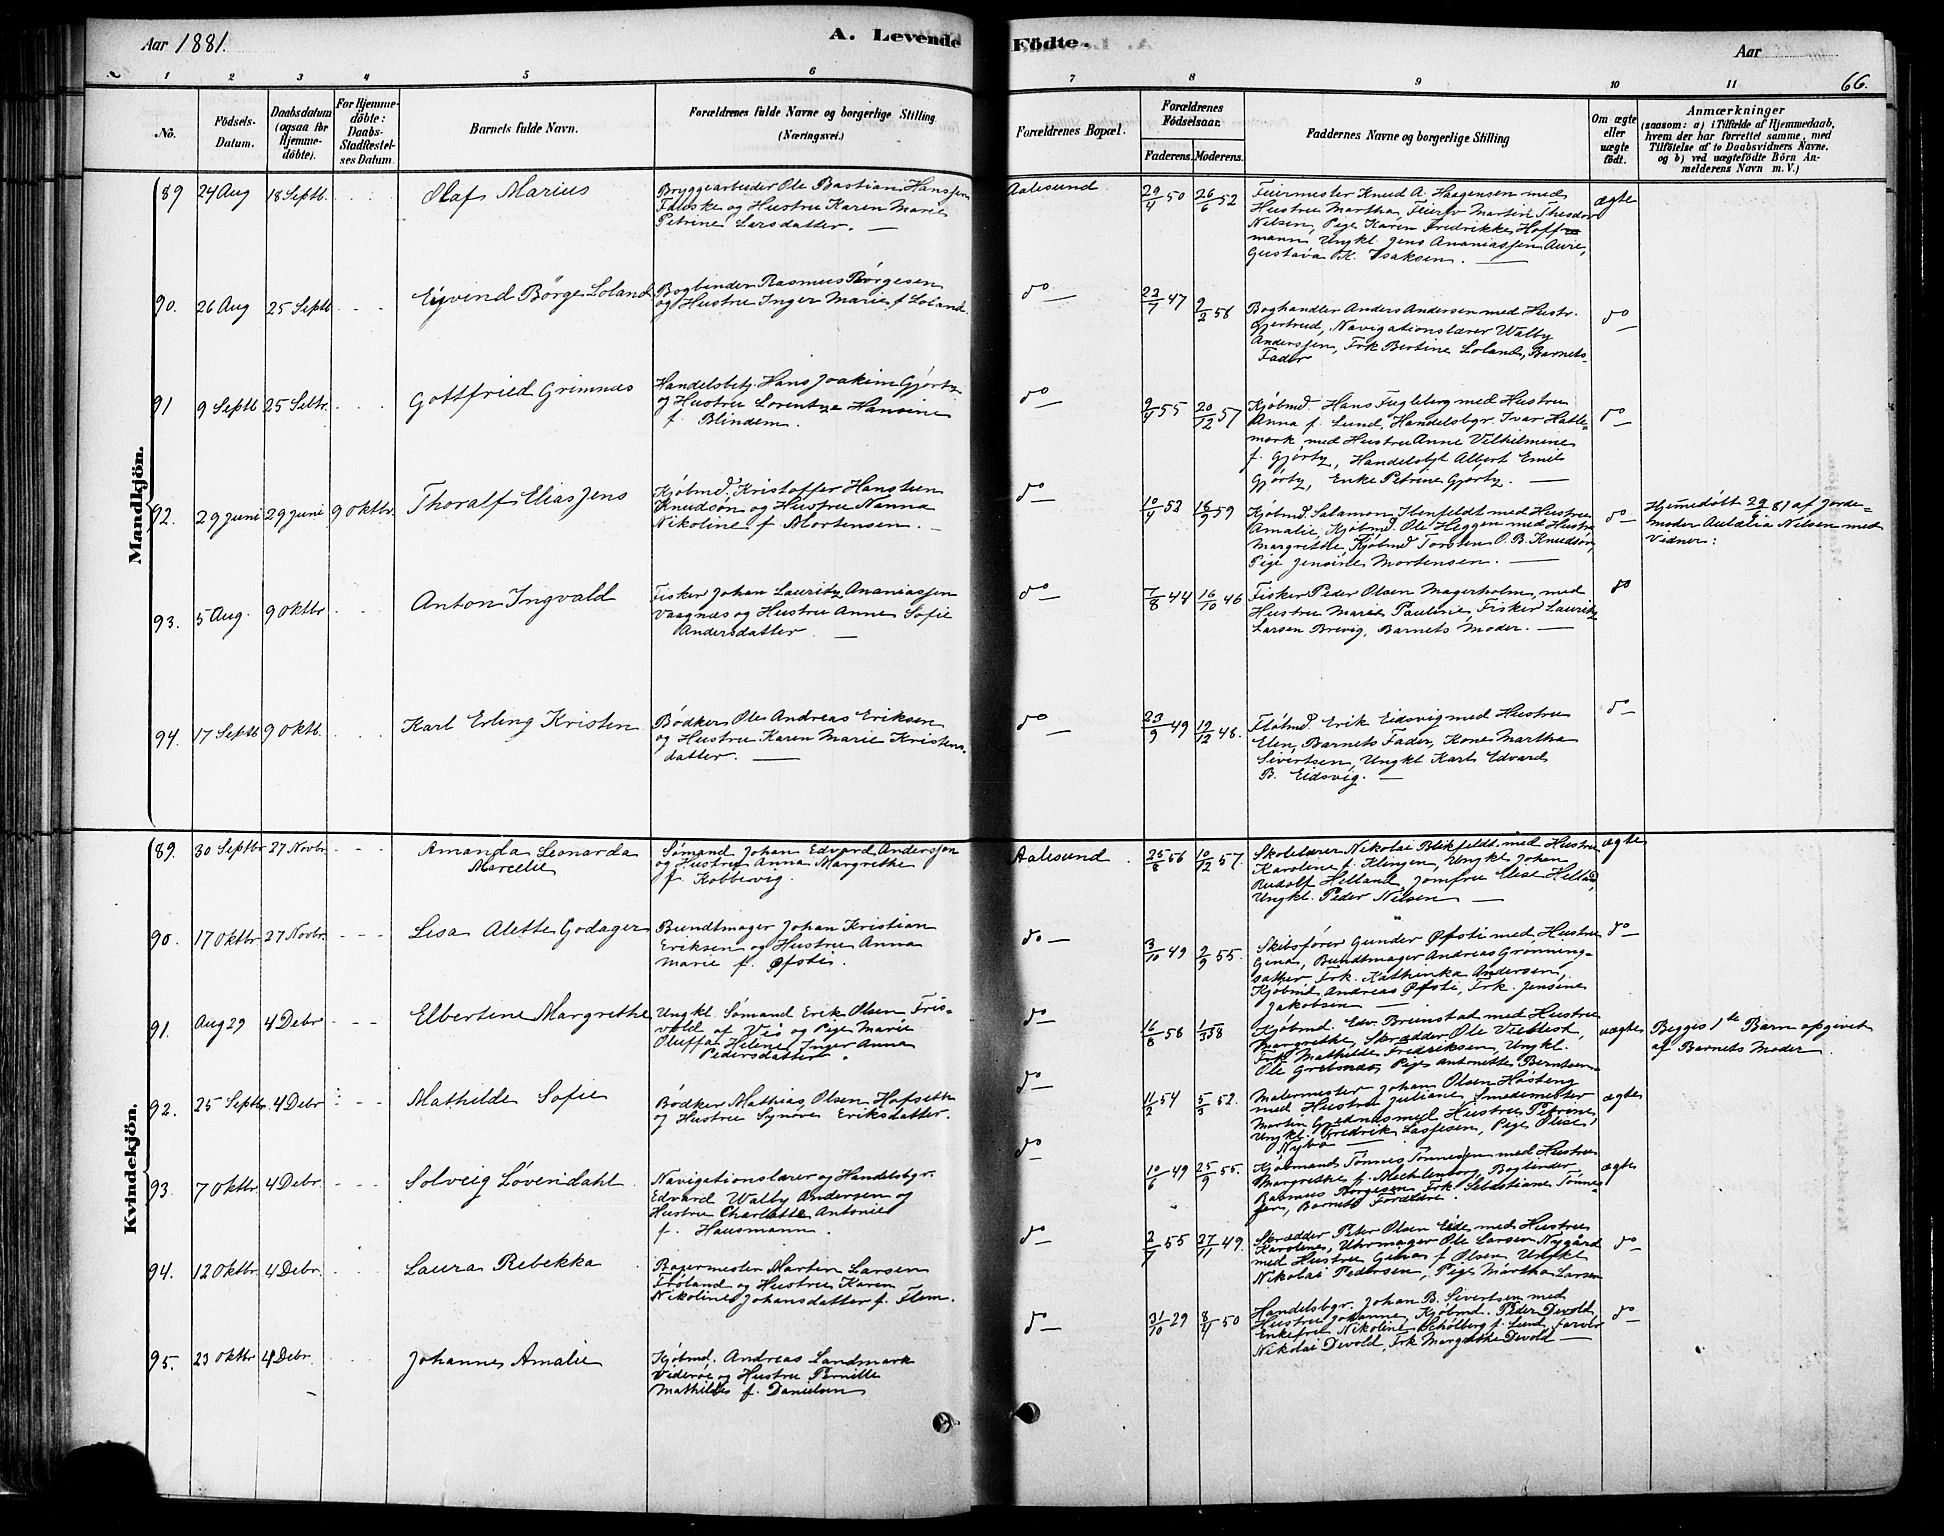 Aar 1881.
A. Levende Födte.
Aar
66.
1 2 3 4 5 6 7 8 9 10 11
No.
Födsels-Datum.
Daabsdatum (ogsaa for Hjemme-döbte).
For Hjemme-döbte: Daabs-Stadfæstel-ses Datum.
Barnets fulde Navn.
Forældrenes fulde Navne og borgerlige Stilling
(Næringsvei.)
Forældrenes Bopæl.
Forældrenes Födselsaar.
Faderens. Moderens.
Faddernes Navne og borgerlige Stilling
Om ægte eller uægte födt.
Anmærkninger
(saasom: a) i Tilfælde af Hjemmedaab,
hvem der har forrettet samme, med
Tilföielse af to Daabsvidners Navne,
og b) ved uægtefödte Börn An-
melderens Navn m. V.)
Mandkjön.
89 24 Aug 18 Septb. Olaf Marius
Bryggearbeider Ole Bastian Hanssen
Fauske og Hustru Karen Marie
Petrine Larsdatter. —
Aalesund 29/4 50 26/6 52
Feiermester Knud A. Haagensen med
Hustru Martha, Feiersv Martin Theodor
Nilsen, Pige Karen Fredrikke Hoff-
mann Ungkl. Jens Ananiassen Aure,
Gustava K. Isaksen. —
ægte
90. 26 Aug 25 Septb Eyvind Börge Loland
Bogbinder Rasmus Børgesen
og Hustru Inger Marie f. Loland.
do 23/7 47 9/2 56
Boghandler Anders Andersen med Hustr.
Gjertrud, Navigationslærer Walby
Anderssen, Frk Bertine Loland, Barnets
Fader
do
91 9 Septb 25 Setbr. Gottfried Grimnæs
Handelsbetj. Hans Joakim Gjørtz
og Hustru Lorentze Hansine
f. Blindem.
do 9/4 55 20/12 57
Kjøbmd. Hans Fugleberg med Hustru
Anna f. Lund, Handelsbgr. Ivar Hatle-
mark med Hustru Anne Vilhelmine
f. Gjørtz, Handelsbjt Albert Emil
Gjørtz, Enke Petrine Gjørtz. —
do
92. 29 Juni 29 Juni 9 Oktbr. Thoralf Elias Jens
Kjøbmd. Kristoffer Hansteen
Knudsøn og Hustru Nanna
Nikoline f. Mortensen. —
do 10/4 52 16/9 59
Kjøbmd. Salamon Henfeldt med Hustru
Amalie, Kjøbmd. Ole Heggen med Hustru
Margrethe, Kjøbmd Torsten O. B. Knudsøn,
Pige Jensine Mortensen. —
do
Hjemmedøbt 29/6 81 af Jorde-
moder Nilsen med
Vidner:
93. 5 Aug. 9 Oktbr Anton Ingvald
Fisker Johan Lauritz Ananiassen
Vaagnæs og Hustru Anne Sofie
Andersdatter —
do 7/8 44 16/10 46
Fisker Peder Olsen Magerholm, med
Hustru Marie Pauline, Fisker Lauritz
Larsen Brevig, Barnets Moder. —
do
94. 17 Septb 9 Oktb. Karl Erling Kristen
Bødker Ole Andreas Eriksen
og Hustru Karen Marie Kristens-
datter. —
do 23/9 49 19/12 48.
Fløtmd. Erik Eidsvig med Hustru
Elen, Barnets Fader, Kone Martha
Sivertsen, Ungkl Karl Edvard
B. Eidsvig. —
do
Kvindekjön.
89. 30 Septbr 27 Novbr. Amanda Leonarda
Marcelie
Sømand Johan Edvard Anderssen
og Hustru Anna Margrethe
f. Kobbevig.
Aalesund 25/8 56 10/12 57.
Skolelærer Nikolai Blikfeldt med Hustru
Karoline f. Klingen, Ungkl Johan
Rudolf Helland, Jomfru Elise Helland,
Ungkl. Peder Nilsen —
ægte
90. 17 Oktbr 27 Novbr. Lisa Alette Godager
Bundtmager Johan Kristian
Eriksen og Hustru Anna
Marie f. Øfsti.
do 3/10 49 2/9 55.
Skibsfører Gunder Øfsti med Hustru
Gina, Bundtmager Andreas Grønning-
sæther, Frk. Kathinka Andersen,
Kjøbmd. Andreas Øfsti, Frk. Jensine
Jakobsen —
do
91. Aug 29 4 Debr Elbertine Margrethe
Ungkl. Sømand Erik Olsen Fris-
vold af Vis og Pige Marie
Oluffa Helene Inger Anna
Pedersdatter.
do 16/8 58 1/3 58
Kjøbmd. Edv. Brunstad med Hustru
Margrethe, Skrædder Ole Vikblest,
Frk Mathilde Fredriksen, Ungkl.
Ole Grebsnæs, Pige Antonette Berntsen
uægte
Begges 1ste Barn opgivet
af Barnets Moder
92. 25 Septbr. 4 Debr Mathilde Sofie
Bødker Mathias Olsen Hofseth
og Hustru Synøve Eriksdatter.
do 11/2 54 5/9 52
Malermester Johan Olsen Høsteng
med Hustru Juliane, Smedemester
Martin Gjednæs med Hustru Petrine,
Ungkl. Fredrik Lassesen, Pige Oline
Nybø —
ægte
93 7 Oktbr. 4 Debr. Solveig Løvendahl.
Navigationslærer og Handelsbgr.
Edvard Walby Andersen og
Hustru Charlotte Antonie
f. Hausmann.
do 10/6 49 25/9 55.
Kjøbmand Tønnes Tønnessen med Hustru
Margrethe f. Mechlenborg, Bogbinder
Rasmus Børgesen, Frk. Sebastiane Tønnes-
sen, Barnets Forældre.
ægte
94. 12 Oktbr. 4 Debr. Laura Rebekka
Bagermester Martin Larsen
Frøland og Hustru Karen
Nikoline Johansdatter f. Flem.
do 2/7 55 27/11 49.
Skrædder Peter Olsen Eide med Hustru
Karoline, Uhrmager Ole Larsen Nygård
med Hustru Gina f. Olsen, Ungkl
Nikolai Pedersen, Pige Martha Larsen
do
95. 23 Oktbr 4 Debr. Johanne Amalie
Kjøbmd. Andreas Landmark
Viderøe og Hustru Pernille
Mathilde f. Danielsen
do 31/10 29 8/4 50
Handelsbgr. Johan B. Sivertsen med
Hustru Johanne, Kjøbmd. Peder Devold,
Enkefru Nikoline Schølberg f. Lund, Farver
Nikolai Devold, Frk Margrethe Devold —
do